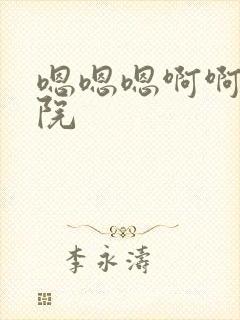 嗯嗯嗯啊啊
院
李永濤